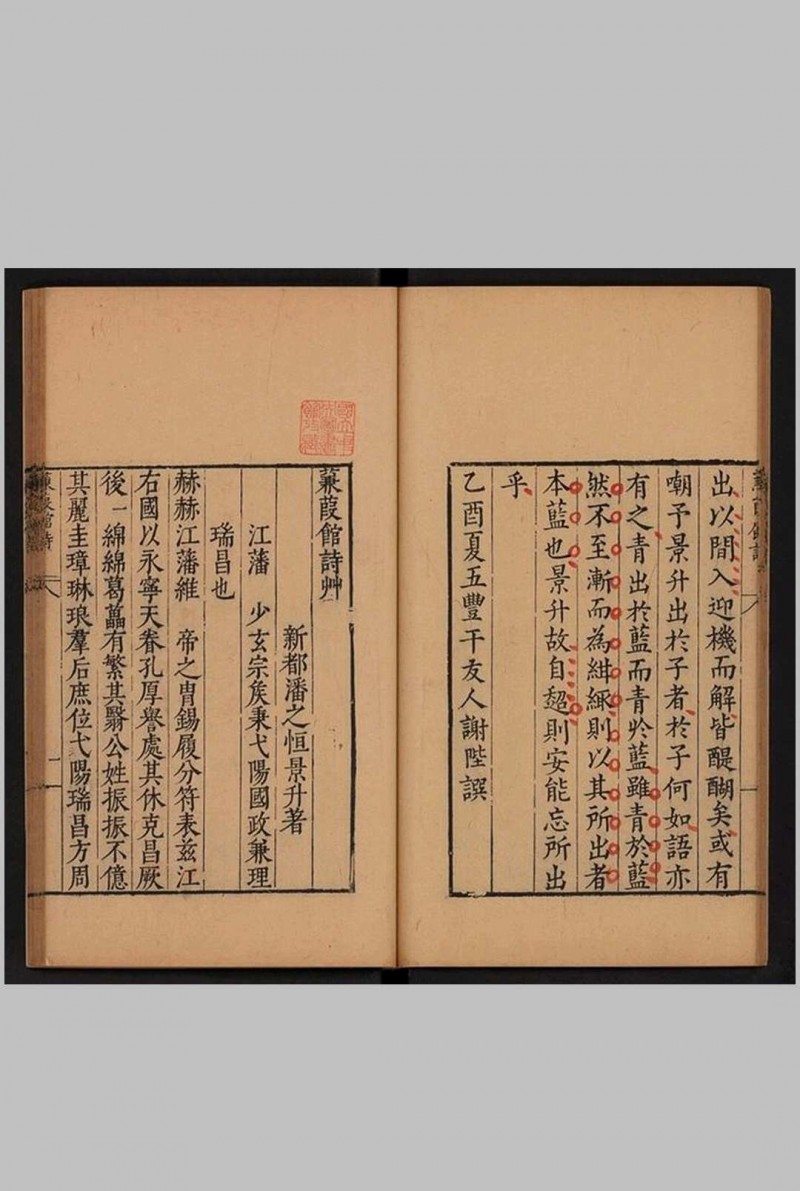 出以間入迎機而解皆醍醐矣或有
嘲予景升出於子者於子何如語亦
有之青出於藍而青於藍雖青於藍
然不至漸而為緋緅則以其所出者
本藍也景升故自超則安能忘所出
乎
乙酉夏五豐干友人謝陛譔
蒹葭館詩艸
新都潘之恒景升著
江藩　少玄宗矦秉弋陽國政兼理
瑞昌也
赫赫江藩維　帝之冑錫履分符表兹江
右國以永寧天眷孔厚譽處其休克昌厥
後一綿綿葛藟有繁其翳公姓振振不億
其麗圭璋琳琅羣后庶位弋陽瑞昌方周
蒹葭館詩